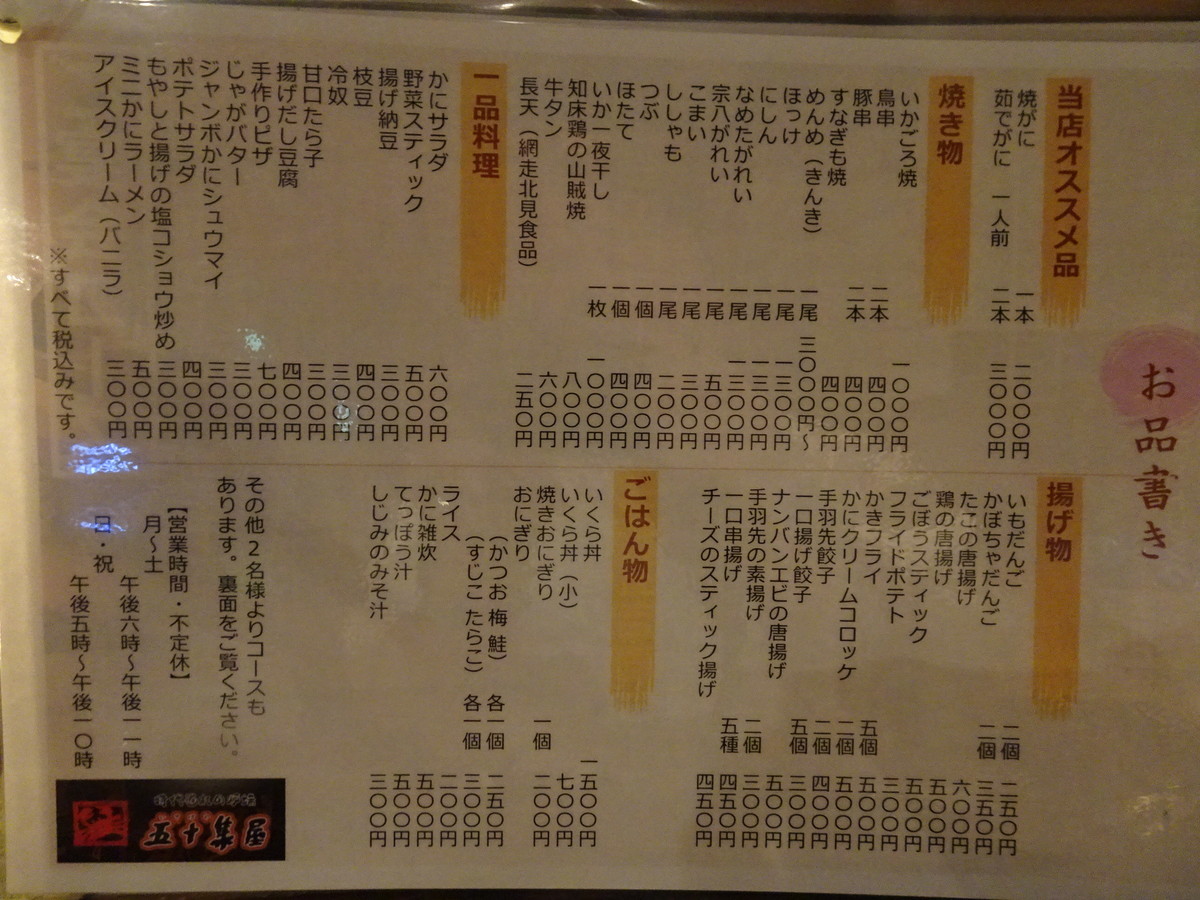 お品書き
当店オススメ品
焼がに 一本 二〇〇〇円
茹でがに 一人前 二本 三〇〇〇円
焼き物
いかごろ焼 一〇〇〇円
鳥串 二本 四〇〇円
豚串 二本 四〇〇円
すなぎも焼 四〇〇円
めんめ（きんき） 一尾 三〇〇〇円〜
ほっけ 一尾 一三〇〇円
にしん 一尾 一三〇〇円
なめたがれい 一尾 一三〇〇円
宗八がれい 一尾 五〇〇円
こまい 一尾 三〇〇円
ししゃも 一尾 二〇〇円
つぶ 一個 四〇〇円
ほたて 一個 四〇〇円
いか一夜干し 一枚 一〇〇〇円
知床鶏の山賊焼 八〇〇円
牛タン 六〇〇円
長天（網走北見食品） 二五〇円
一品料理
かにサラダ 六〇〇円
野菜スティック 五〇〇円
揚げ納豆 三〇〇円
枝豆 四〇〇円
冷奴 三〇〇円
甘口たら子 三〇〇円
揚げだし豆腐 四〇〇円
手作りピザ 七〇〇円
じゃがバター 三〇〇円
ジャンボかにシュウマイ 三〇〇円
ポテトサラダ 四〇〇円
もやしと揚げの塩コショウ炒め 三〇〇円
ミニかにラーメン 五〇〇円
アイスクリーム（バニラ） 三〇〇円
※すべて税込みです。
揚げ物
いもだんご 二個 二五〇円
かぼちゃだんご 二個 三五〇円
たこの唐揚げ 六〇〇円
鶏の唐揚げ 五〇〇円
ごぼうスティック 五〇〇円
フライドポテト 三〇〇円
かきフライ 五個 五〇〇円
かにクリームコロッケ 二個 五〇〇円
手羽先餃子 二個 四〇〇円
一口揚げ餃子 五個 三〇〇円
ナンバンエビの唐揚げ 五〇〇円
手羽先の素揚げ 二個 三〇〇円
一口串揚げ 五種 四五〇円
チーズのスティック揚げ 四五〇円
ごはん物
いくら丼 一五〇〇円
いくら丼（小） 七〇〇円
焼きおにぎり 一個 二〇〇円
おにぎり
（かつお 梅 鮭） 各一個 二五〇円
（すじこ たらこ） 各一個 三〇〇円
ライス 二〇〇円
かに雑炊 五〇〇円
てっぽう汁 五〇〇円
しじみのみそ汁 三〇〇円
その他２名様よりコースも
あります。裏面をご覧ください。
【営業時間・不定休】
月〜土
午後六時〜午後一一時
日・祝
午後五時〜午後一〇時
五十集屋